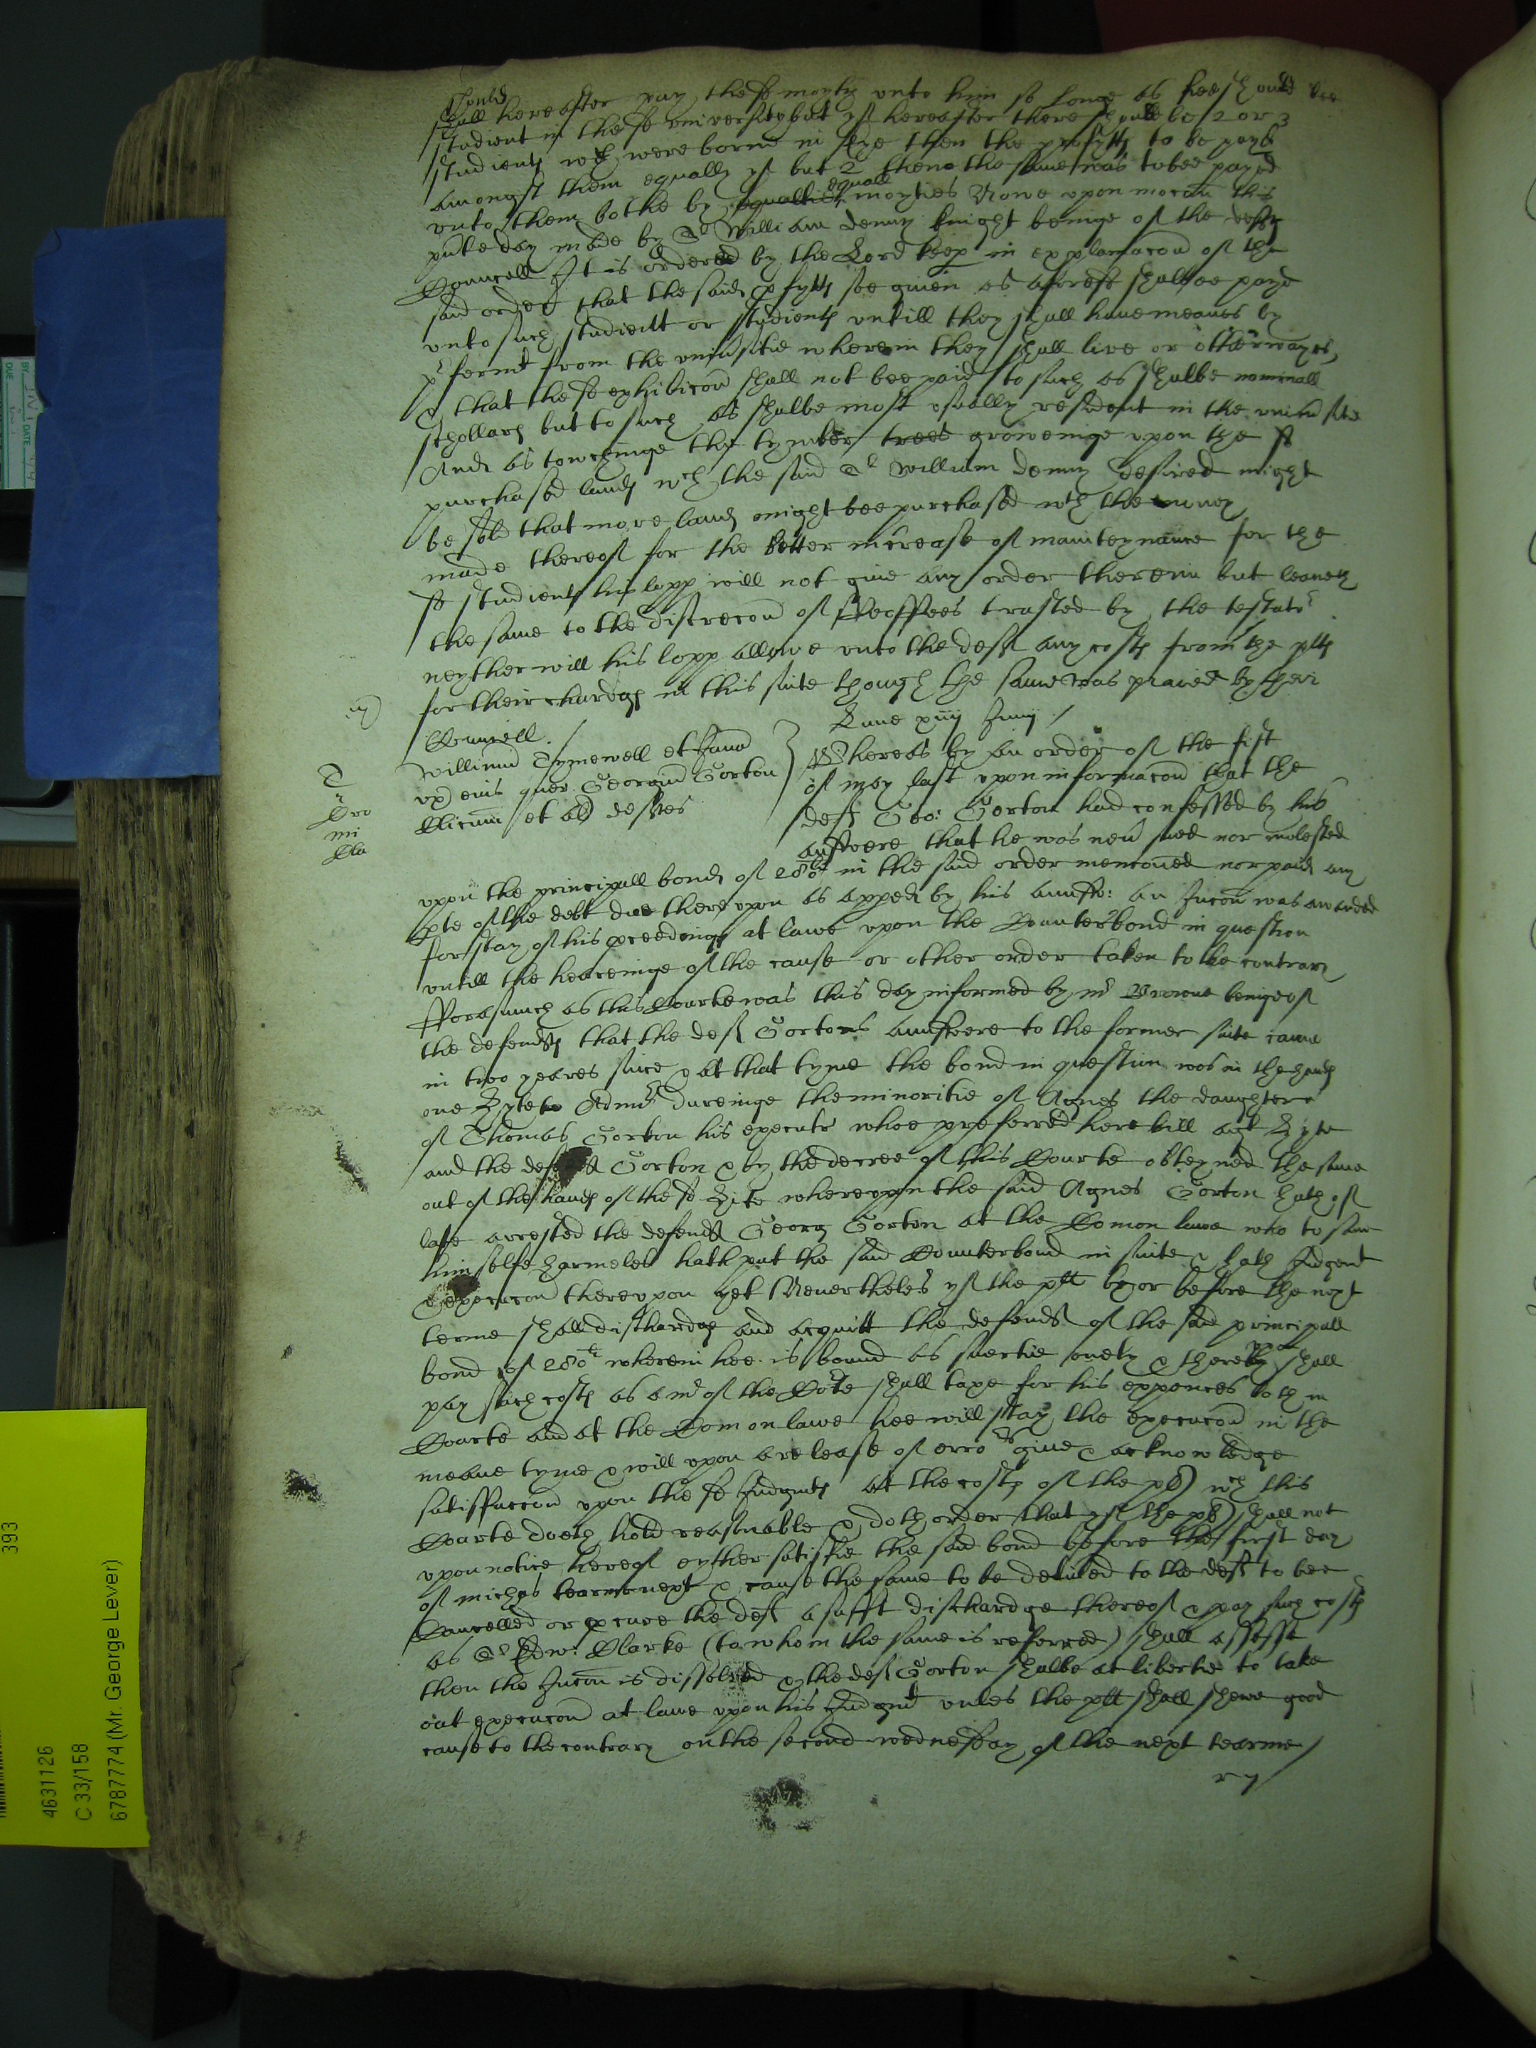 should
shall hereafter pay the sd moyty unto him so longe as hee should bee
student in the sd universitybut yf hereafter there shoulde be 2 or 3
students wch were borne in Rye then the profytts to be payd
amongst them equally yf but 2 thene the same was to bee payed
unto them bothe by equallie equall moyties Nowe upon mocon this
pnte day made by Sr William Denny knight beinge of the defts
Councell It is ordered by the Lord keep in explanacon of the
said order that the said pfytts soe given as aforesd shall be payd
unto such studient or students untill they shall have meanes by
pfermt from the univsitie wherein they shall live or otherwayes,
& that the sd exhibicon shall not bee paid to such as shalbe nominall
schollars but to such as shalbe most usually resident in the univsitie
And as towchinge the tymber trees groweinge upon the sd
purchased lands wch the said Sr William Denny desired might
be sold that more lands might bee purchased wth the money
made thereof for the better increase of mainteynance for the
sd students his lopp will not give any order therein but leaveth
the same to the discrecon of Feoffees trusted by the testator
neyther will his lopp allowe unto the deft any costs from the plts
for their chardgs in this suite though the same was praied by their
Councell.
Lune xiiij Junij
Willimu Tymewell et Jana
ux eius quer Georgiu Gorton
Clicum et al deftes
Whereas by an order of the fist
of may last upon informacon that the
deft Geo: Gorton had confessed by his
answere that he was nev sued nor molested
upon the principall bond of 280li in the said order mencioned nor paid any
pte of the debt due thereupon as apped by his answ: an Iniuncon was awarded
for stay of his pceedings at lawe upon the Counterbond in question
untill the heareinge of the cause or other order taken to the contrary
Fforasmuch as this Courte was this day informed by mr Browne beinge of
the defendts that the deft Gortons answere to the former suite came
in two yeares since & at that tyme the bond in question was in the hands
one Lyte Admr dureinge the minoritie of Agnes the daughter
of Thomas Gorton his executr whoe preferred here bill agt Lyte
and the defend Gorton & by the decree of this Courte obteyned the same
out of the hands of the sd Lite whereupon the said Agnes Gorton hath of
late arrested the defendt Georg Gorton at the Comon lawe who to save
himselfe harmeles hath put the said Counterbond in suite & hath Judgent
& execucon thereupon yet Nevertheles yf the plt by or before the next
terme shall dischardge and acquitt the defendt of the said principall
bond of 280li wherein hee is bound as suertie onely & thereupon shall
pay such costs as a mr of the Corte shall taxe for his expences both in
Courte and at the Comon lawe hee will stay the execucon in the
meane tyme & will upon a release of errors give & acknowledge
satisfaccon upon the sd Judgmts at the costs of the pl) wch this
Courte doeth hold reasonable & doth order that yf the pl) shall not
upon notice hereof eyther satisfie the said bond before the first day
of michas tearme next & cause the same to be delived to the deft to bee
Cancelled or pcure the deft a sufft dischardge thereof & pay such costs
as Sr Edw: Clarke (to whom the same is referred) shall assesse
then the Iniuncon is dissolved & the deft Gorton shalbe at libertie to take
out execucon at lawe upon his Judgmt unles the plt shall shewe good
cause to the contrary on the second wednesday of the next tearme
4631126
C 33/158
6787774 (Mr. George Lever)
393